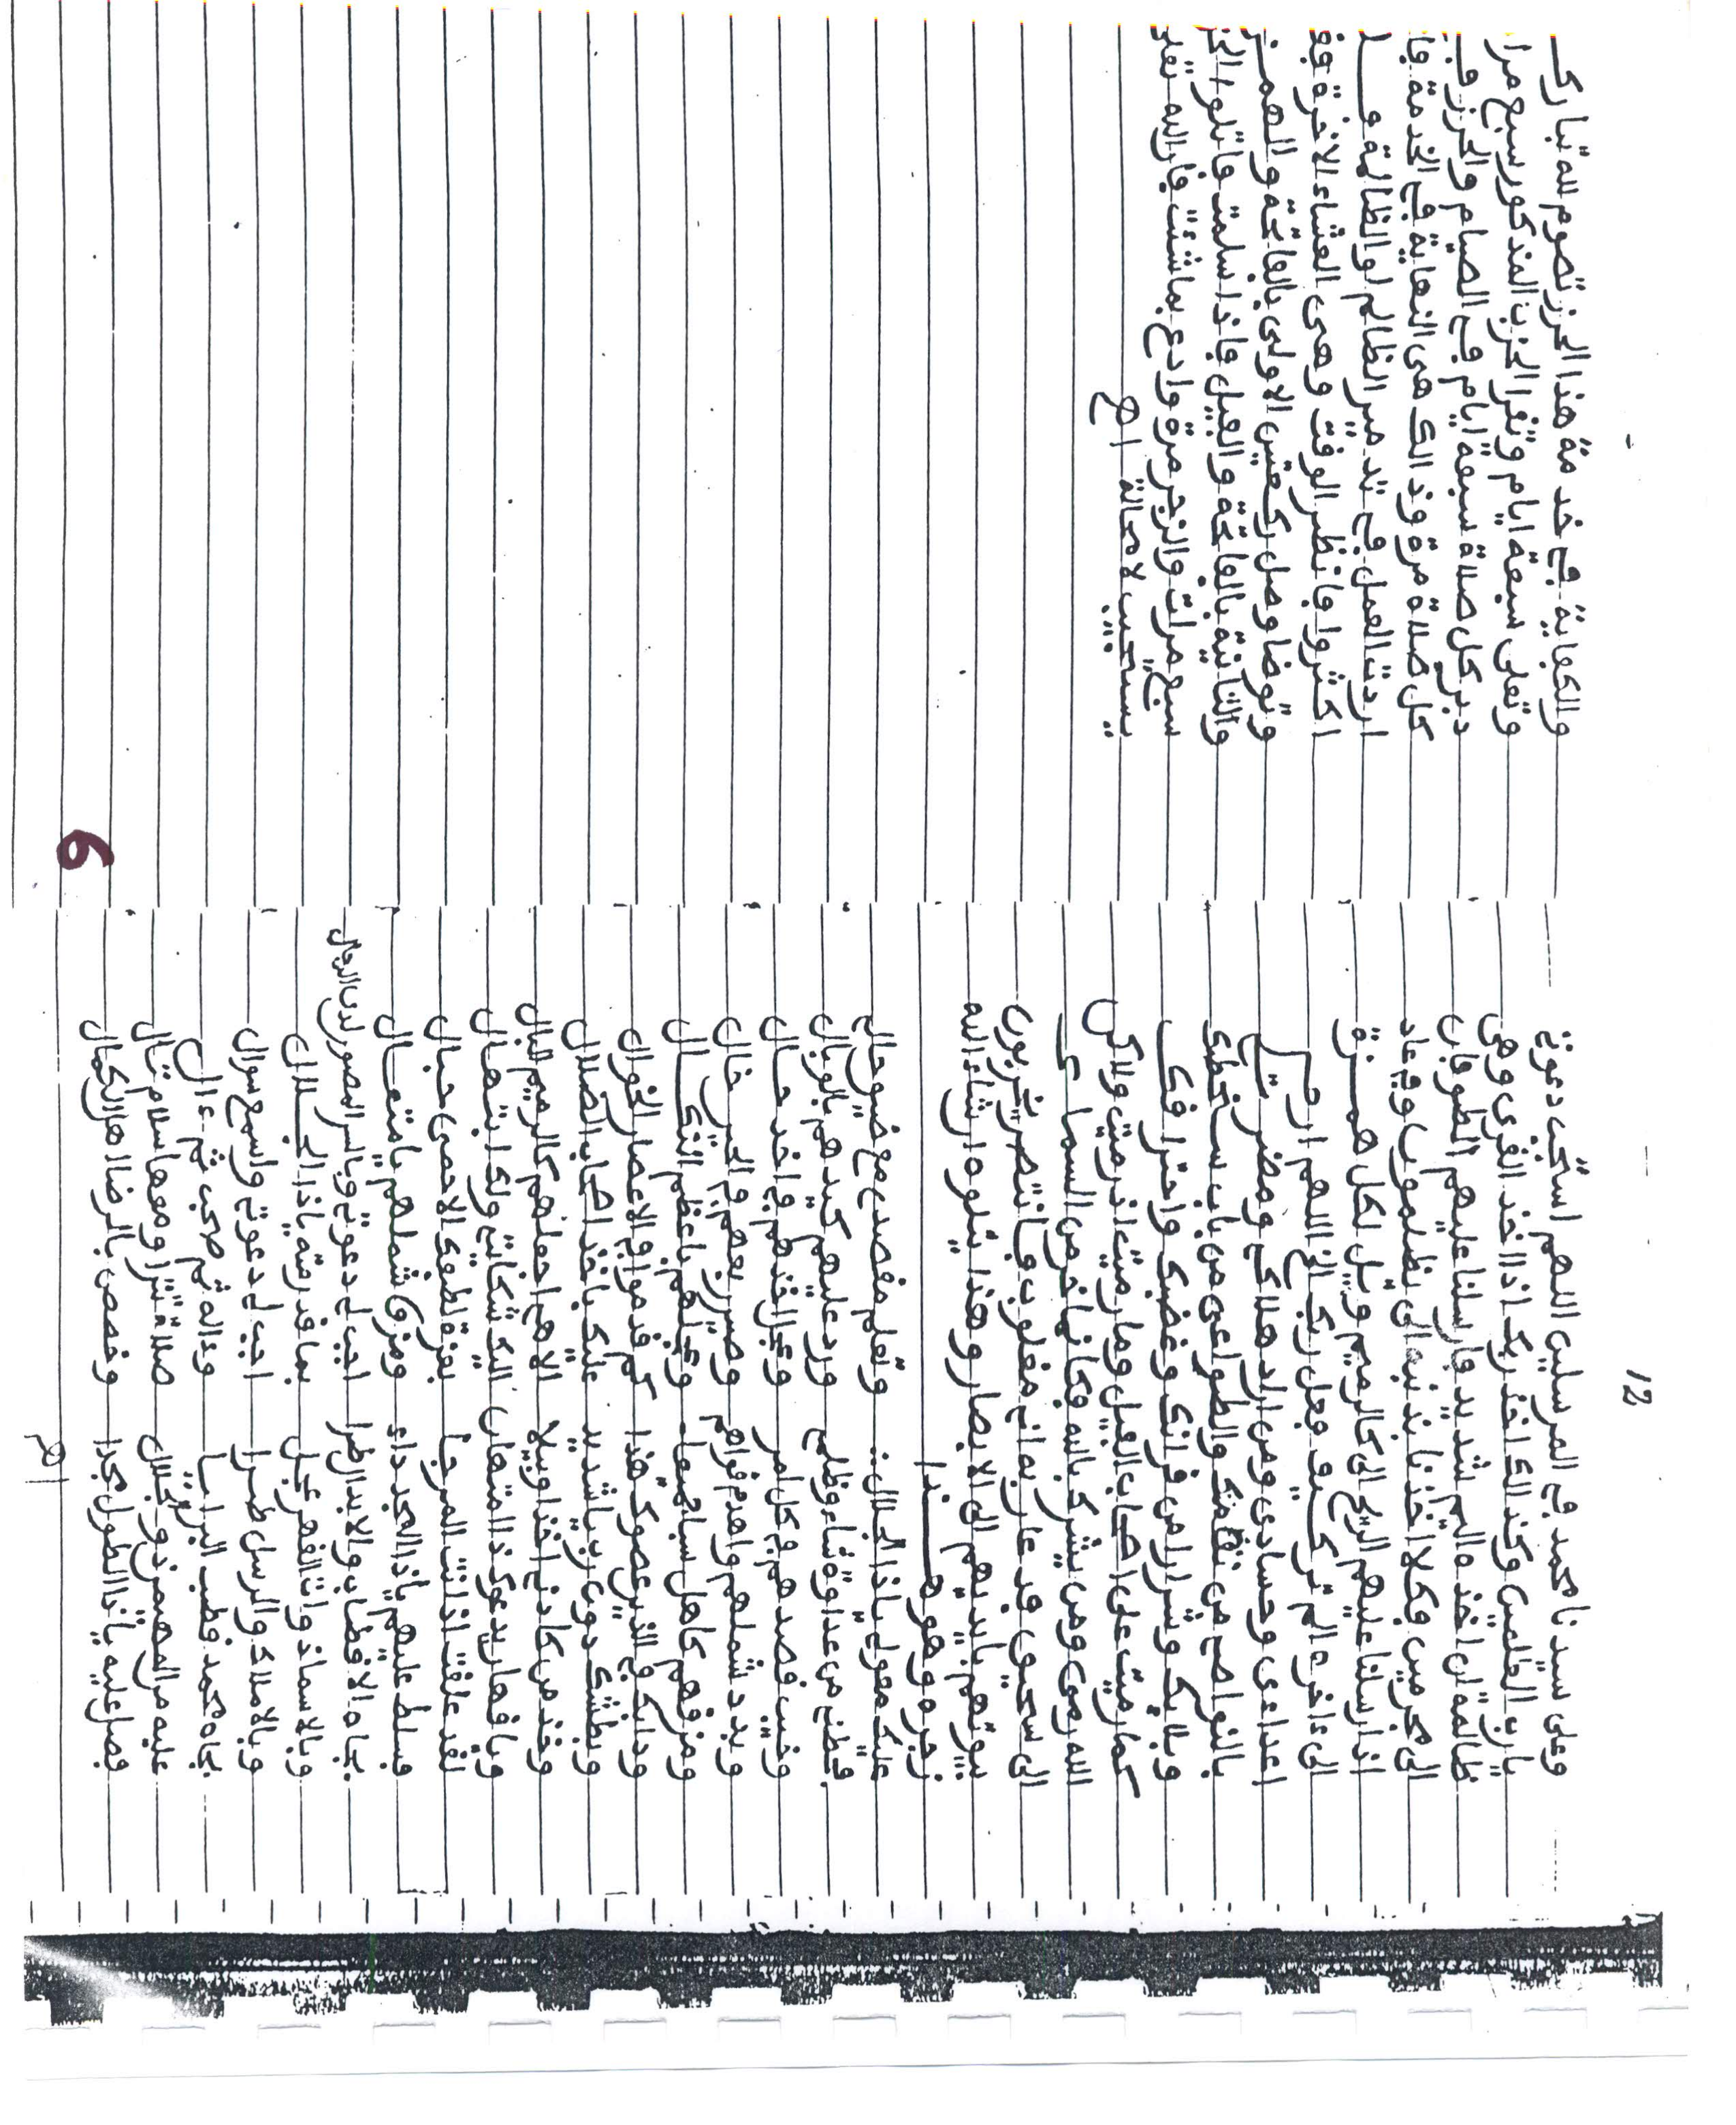 12
وعلى سيدنا محمد في المرسلين اللهم استجب دعوتي
يا رب العلمين وكذالك اخذ ربك اذا اخذ القرى وهي
ظالمة ان اخذه اليم شديد فارسلنا عليهم الطوفان
الى مجرمين فكلا اخذنا بذنبه الى يظلمون وفي عاد
اذ ارسلنا عليهم الريح الى كالرميم ويل لكل همزة
الى ءاخره الم تر كيف فعل ربك الخ اللهم ارم
اعداءي وحسادي ومن اراد هلاكي ومضرتي
بالنواصح من نقمتك والطواعي من باب سخطك
وبلايك وشرارا من فرانك وغضبك واحترافك
كما رميت على اصحاب الفيل وما رميت اذ رميت ولاكن
الله رمى ومن يشرك بالله فكانما خر من السماء
الى سحيق فدعا ربه اني مغلوب فانتصر يخربون
بيوتهم بايديهم الى الابصار وهذا يتلوه ان شاء الله
زجره وهو هذا
عليك معولي ياذا الجلال : وتعلم مقصدي مع ضيق حالي
فخلني من عداوة شاء وظلمي ورد عليهم كيدهم بالوبال
وخيب قصدهم في كل امر وعجل اخذهم في اخذ حال
وبدد شملهم واهدم قواهم وصير ربعهم في الخير خال
ومزقهم كاهل سبا جميعا وعجلهم باعظم النكال
ودابك في الذي عصوك هذا كم قدموا في الاعصار الخوال
وبطشك دون ريب يا شديد عليك باخذ اصحاب الضلال
وخذ من كادني اخذا وبيلا الاهي اجعلهم كالرميم البال
ويا قهار يدعوك ذا امتهان اليك شكاتي ولك ابتهال
لقد علقت اذ لنت المرجا بعزة لطفك الاحمى حبال
فسلط عليهم ياذا المجد داء ومزق شملهم يا متعال
بجاه الاقطاب والابدال طرا اجب لي دعوتي وياسر المصور لدى الرجال
وبالاسماء ذوات القهر عجل بما قد رمته ياذا الجلال
وبالاملاك والرسل طرا اجب لي دعوتي واسمع سوال
بجاه محمد قطب البرايا وءاله ثم صحب ثم ءال
عليه من المهيمن ذو جلال صلاة تترا ومعها سلام تال
فصل عليه ياذا الطول مجدا وخصص بالرضا اهل الكمال
اهـ
والكفاية في خدمة هذا الحرز تصوم لله تبارك
وتعلى سبعة ايام وتقرا الحزب المذكور سبع مرا
دبر كل صلاة سبعة ايام في الصيام والحرز فـ
كل صلاة مرة وذالك هي النهاية في الخدمة فا
اردت العمل في تدمير الظالم او الظالمة و
اكثروا فانظر الوقت وهي العشاء الاخرة فـ
وتوضا وصل ركعتين الاولى بالفاتحة والهمز
والثانية بالفاتحة والفيل فاذا سلمت فاتلوا الحز
سبع مرات والزجر مرة وادع بما شئت فان الله تعلى
يستجيب لا محالة اهـ
6